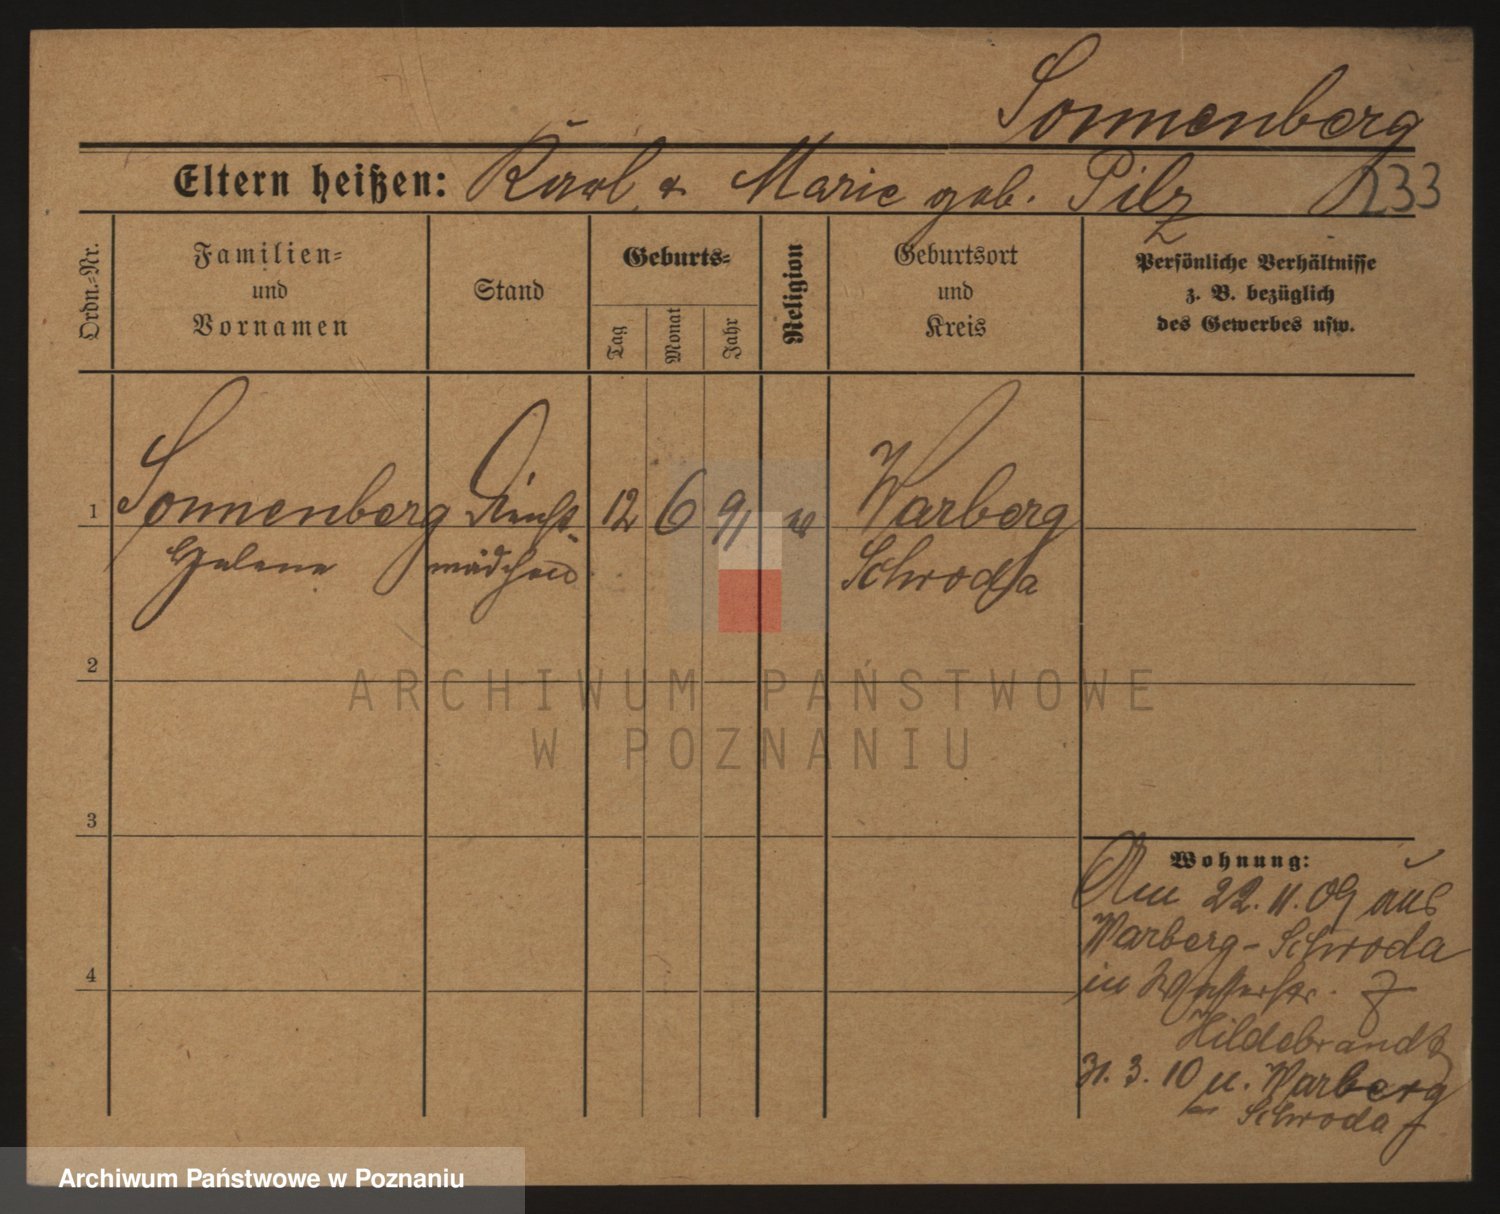 Sonnenberg
Eltern heißen: Karl & Marie geb. Pilz
233
Ordn.-Nr.
Familien-
und
Vornamen
Stand
Geburts-
Tag
Monat
Jahr
Religion
Geburtsort
und
Kreis
Persönliche Verhältnisse
z. B. bezüglich
des Gewerbes usw.
1
Sonnenberg
Helene
Dienst-
mädchen
12
6
91
Warberg
Schroda
2
3
4
Wohnung:
22.11.09 aus
Warberg-Schroda
in Wasserstr. 7
Hildebrandt
31.3.10 n. Warberg
Schroda
ARCHIWUM PAŃSTWOWE
W POZNANIU
Archiwum Państwowe w Poznaniu